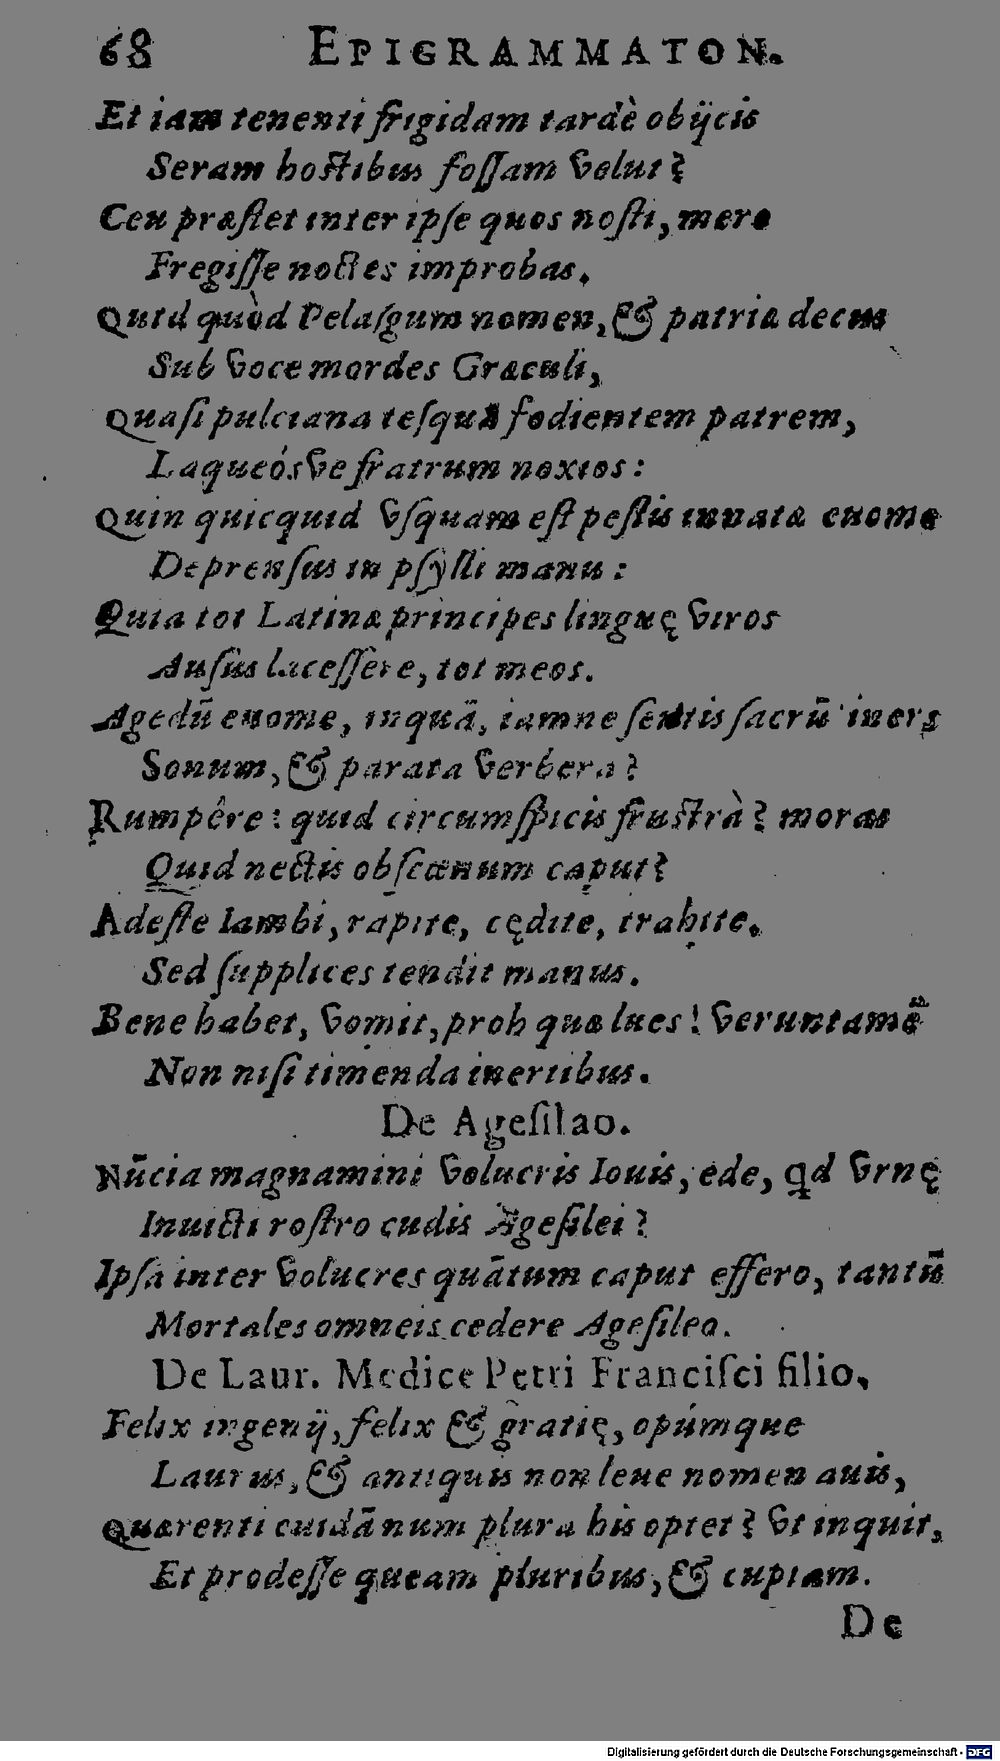 68 EPIGRAMMATON.
Et iam tenenti frigidam tardè obijcis
Seram hostibus fossam velut?
Ceu præstet inter ipse quos nosti, mero
Fregisse noctes improbas.
Quid quòd Pelasgum nomen, & patriæ decus
Sub voce mordes Græculi,
Quasi pulciana tesqua fodientem patrem,
Laqueósve fratrum noxios:
Quin quicquid vsquam est pestis innatæ euome
Deprensus in psylli manu:
Quia tot Latinæ principes linguę viros
Ausus lacessere, tot meos.
Agedū euome, inquā, iamne sentis sacrū iners
Sonum, & parata verbera?
Rumpêre: quid circumspicis frustrà? moras
Quid nectis obscœnum caput?
Adeste Iambi, rapite, cędite, trahite.
Sed supplices tendit manus.
Bene habet, vomit, proh quæ lues! veruntamē
Non nisi timenda inertibus.
De Agesilao.
Nūcia magnamini volucris Iouis, ede, qd vrnę
Inuicti rostro cudis Agesilei?
Ipsa inter volucres quātum caput effero, tantū
Mortales omneis cedere Agesileo.
De Laur. Medice Petri Francisci filio.
Felix ingenij, felix & gratię, opúmque
Laurus, & antiquis non leue nomen auis,
Quærenti cuidā num plura his optet? vt inquit,
Et prodesse queam pluribus, & cupiam.
De
Digitalisierung gefördert durch die Deutsche Forschungsgemeinschaft - DFG